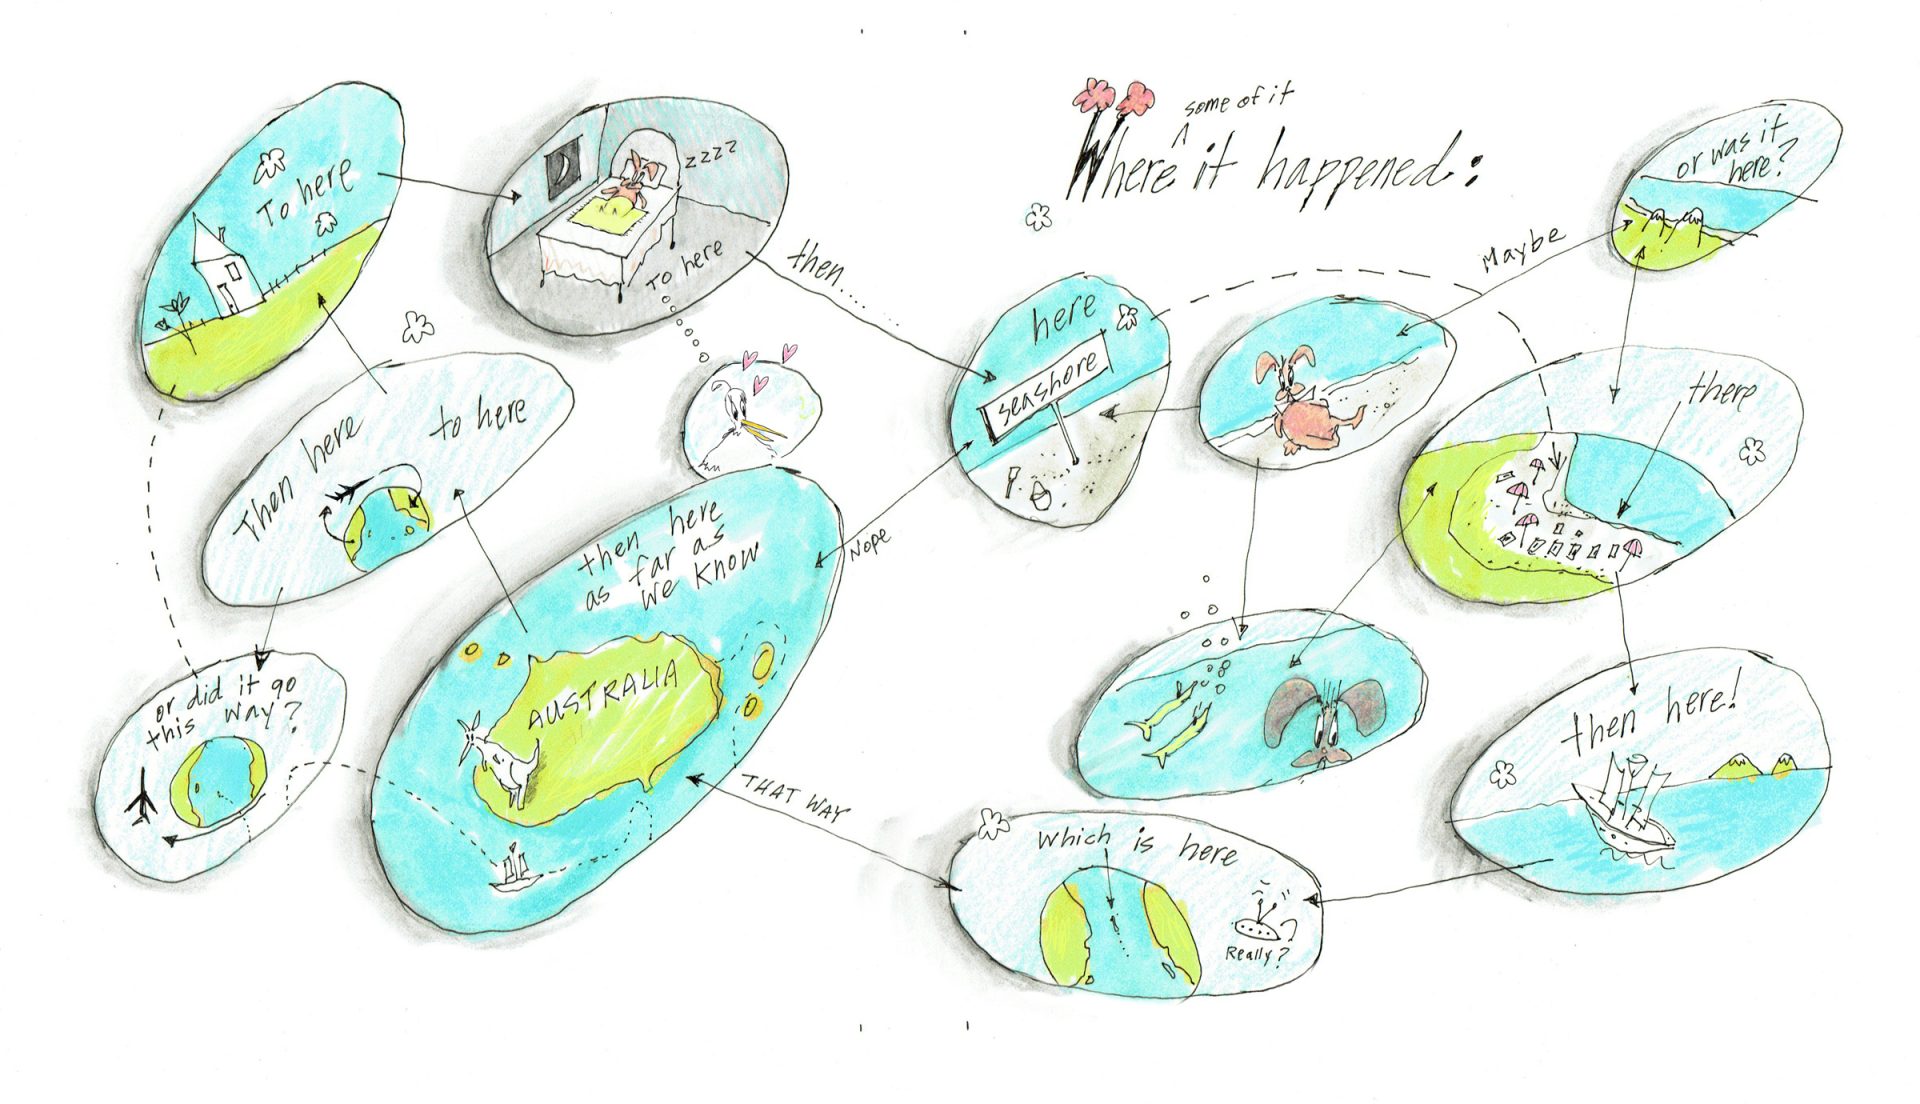 some of it
Where ^ it happened:
To here
zzzz
To here
then.....
here
seashore
Maybe
or was it
here?
there
Then here
to here
then here
as far as
we know
Nope
AUSTRALIA
or did it go
this way?
THAT WAY
which is here
Really?
then here!